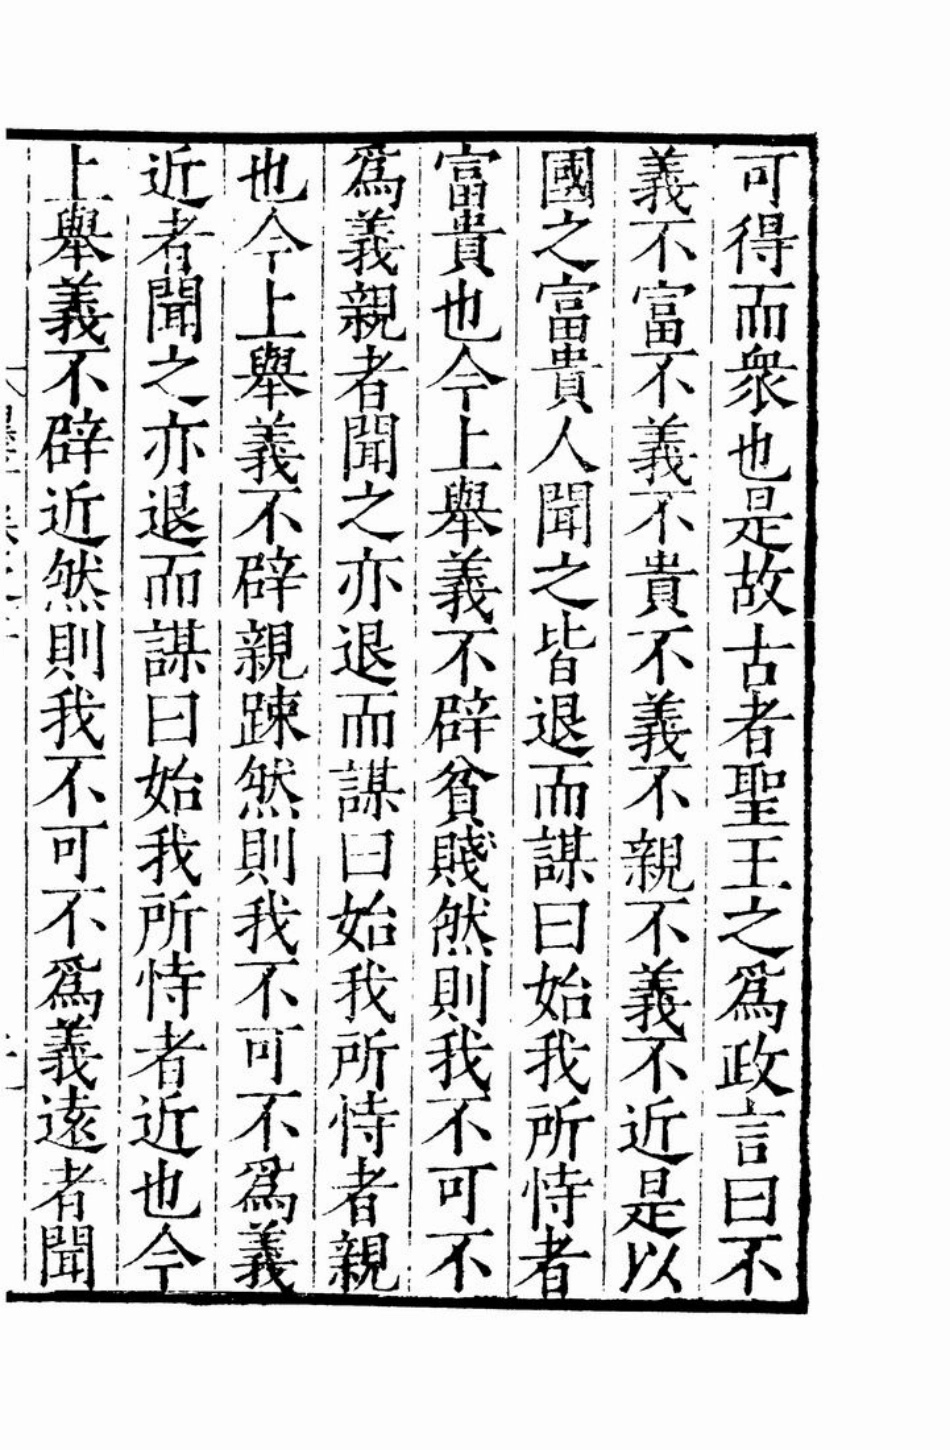 可得而衆也是故古者聖王之爲政言曰不
義不富不義不貴不義不親不義不近是以
國之富貴人聞之皆退而謀曰始我所恃者
富貴也今上舉義不辟貧賤然則我不可不
爲義親者聞之亦退而謀曰始我所恃者親
也今上舉義不辟親踈然則我不可不爲義
近者聞之亦退而謀曰始我所恃者近也今
上舉義不辟近然則我不可不爲義遠者聞